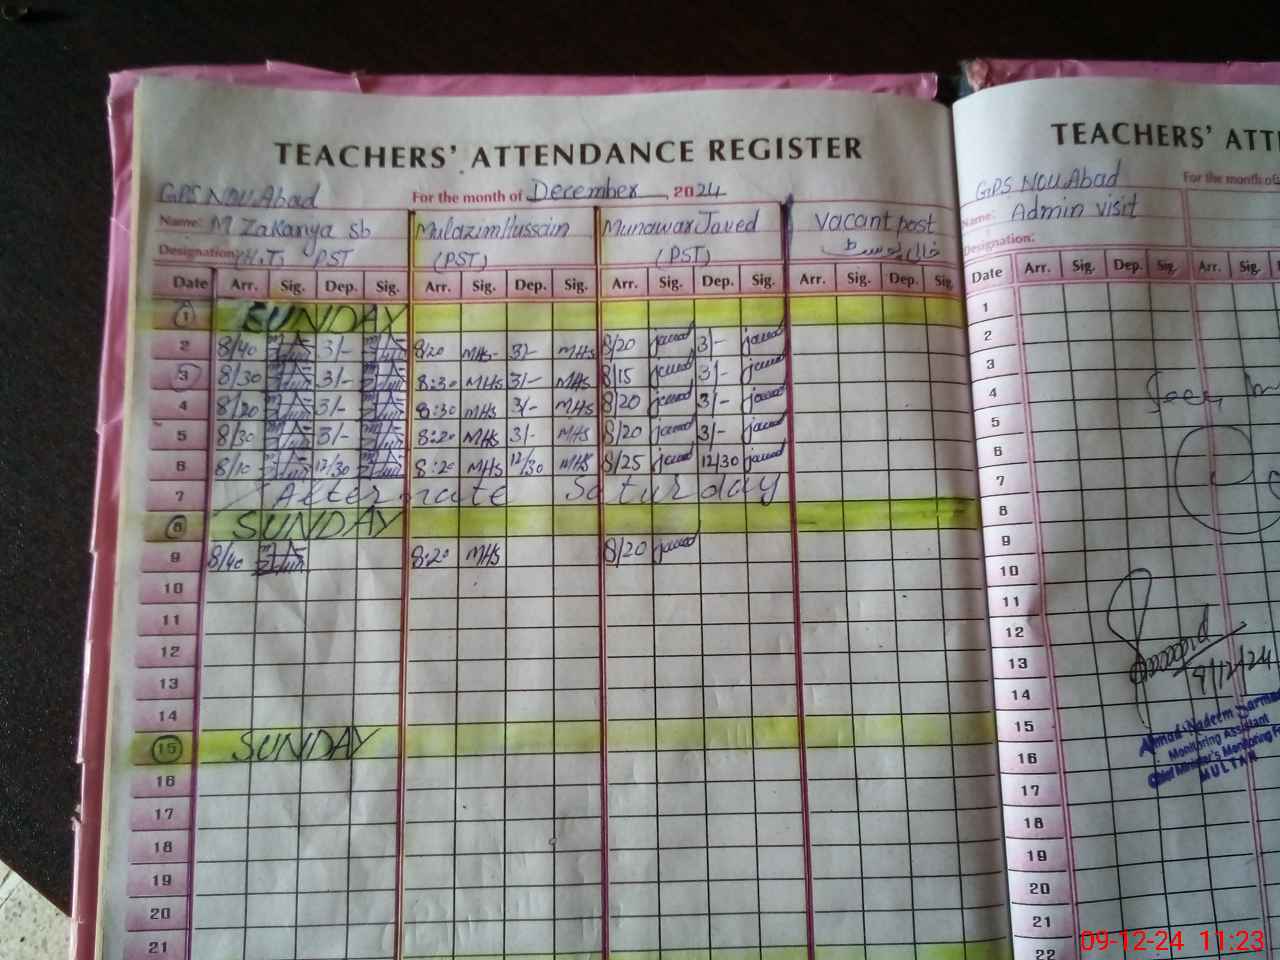 TEACHERS' ATTENDANCE REGISTER
GPS NOU Abad For the month of December, 2024
Name: M Zakariya sb Mulazim Hussain Munawar Javed Vacant post
Designation: (H.T) PST (PST) (PST)
Date Arr. Sig. Dep. Sig. Arr. Sig. Dep. Sig. Arr. Sig. Dep. Sig. Arr. Sig. Dep. Sig.
1 SUNDAY
2 8/40 3/- 8/20 MHS 3/- MHS 8/20 javed 3/- javed
3 8/30 3/- 8:30 MHS 3/- MHS 8/15 javed 3/- javed
4 8/20 3/- 8:30 MHS 3/- MHS 8/20 javed 3/- javed
5 8/30 3/- 8:20 MHS 3/- MHS 8/20 javed 3/- javed
6 8/10 12/30 8:20 MHS 12/30 MHS 8/25 javed 12/30 javed
7 Alternate Saturday
8 SUNDAY
9 8/40 8:20 MHS 8/20 javed
10
11
12
13
14
15 SUNDAY
16
17
18
19
20
21
TEACHERS' ATT
GPS NOU Abad For the month of
Name: Admin visit
Designation:
Date Arr. Sig. Dep. Sig. Arr. Sig.
1
2
3
4
5
6
7
8
9
10
11
12
13
14
15
16
17
18
19
20
21
22
9/12/24
Ahmad Nadeem
Monitoring Assistant
Chief Minister's Monitoring
MULTAN
09-12-24 11:23